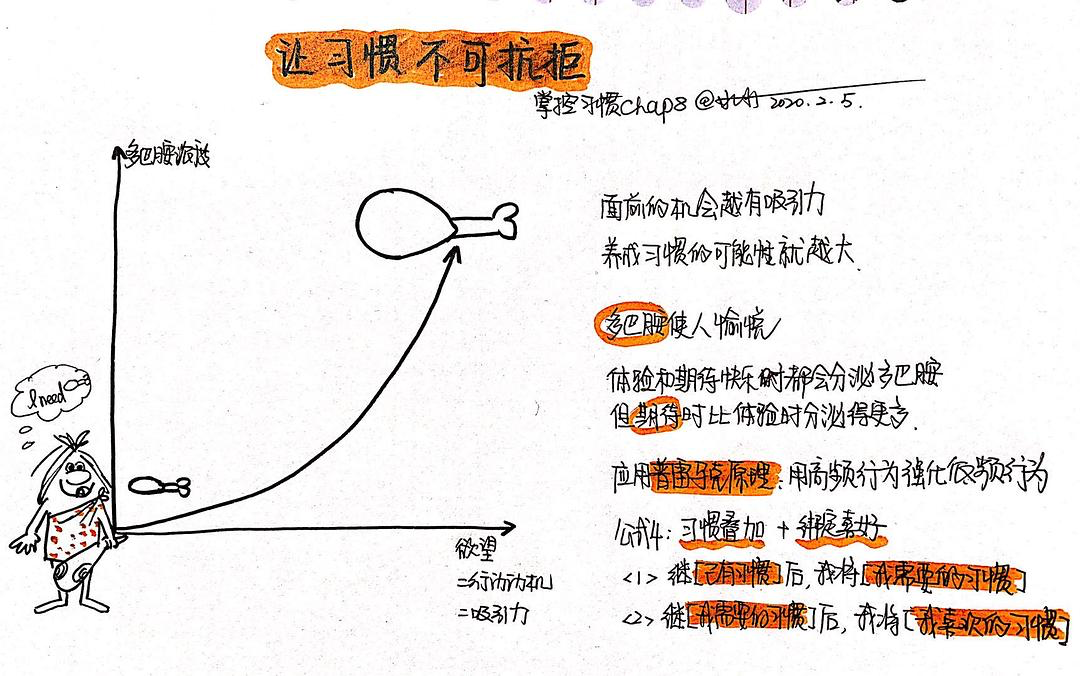 让习惯不可抗拒
掌控习惯chap8 @ 2020.2.5.
多巴胺释放
面前的机会越有吸引力
养成习惯的可能性就越大.
多巴胺使人愉悦
体验和期待快乐时都会分泌多巴胺
但期待时比体验时分泌得更多.
I need
应用普雷马克原理:用高频行为强化低频行为
公式4:习惯叠加+绑定喜好
<1>继[已有习惯]后,我将[我需要的习惯]
<2>继[我需要的习惯]后,我将[我喜欢的习惯]
欲望
=行动动机
=吸引力